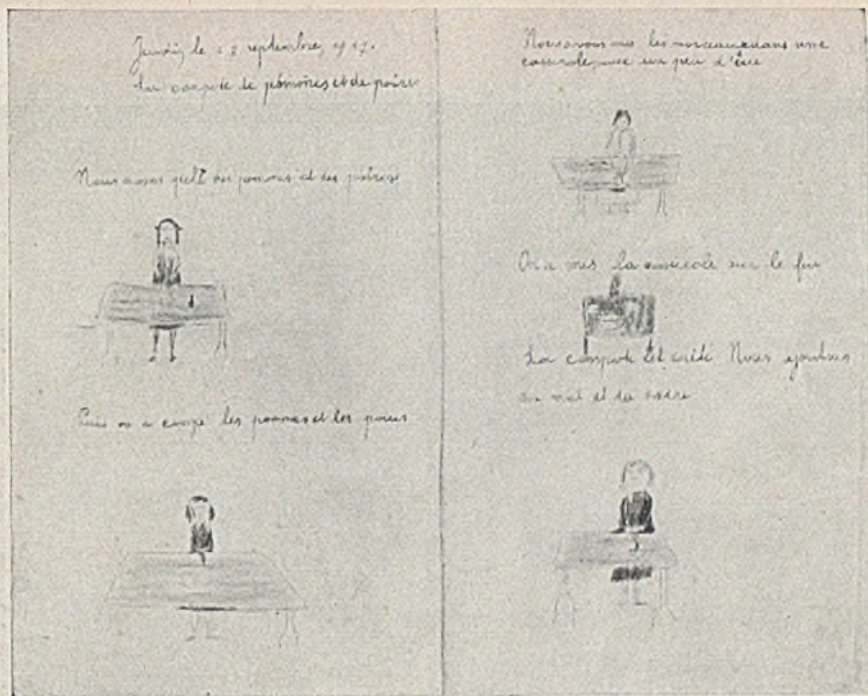 Jeudi, le septembre, 1917.
La compote de pommes et de poires
Nous avons des pommes et des poires
Puis on a coupé les pommes et les poires
Nous avons mis les morceaux dans une
casserole avec un peu d'eau
On a mis la casserole sur le feu
La compote est cuite Nous ajoutons
du miel et du sucre